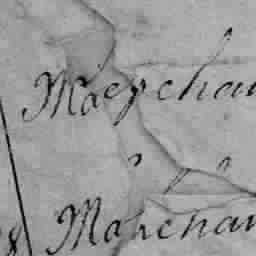 Maerchan
Marchan